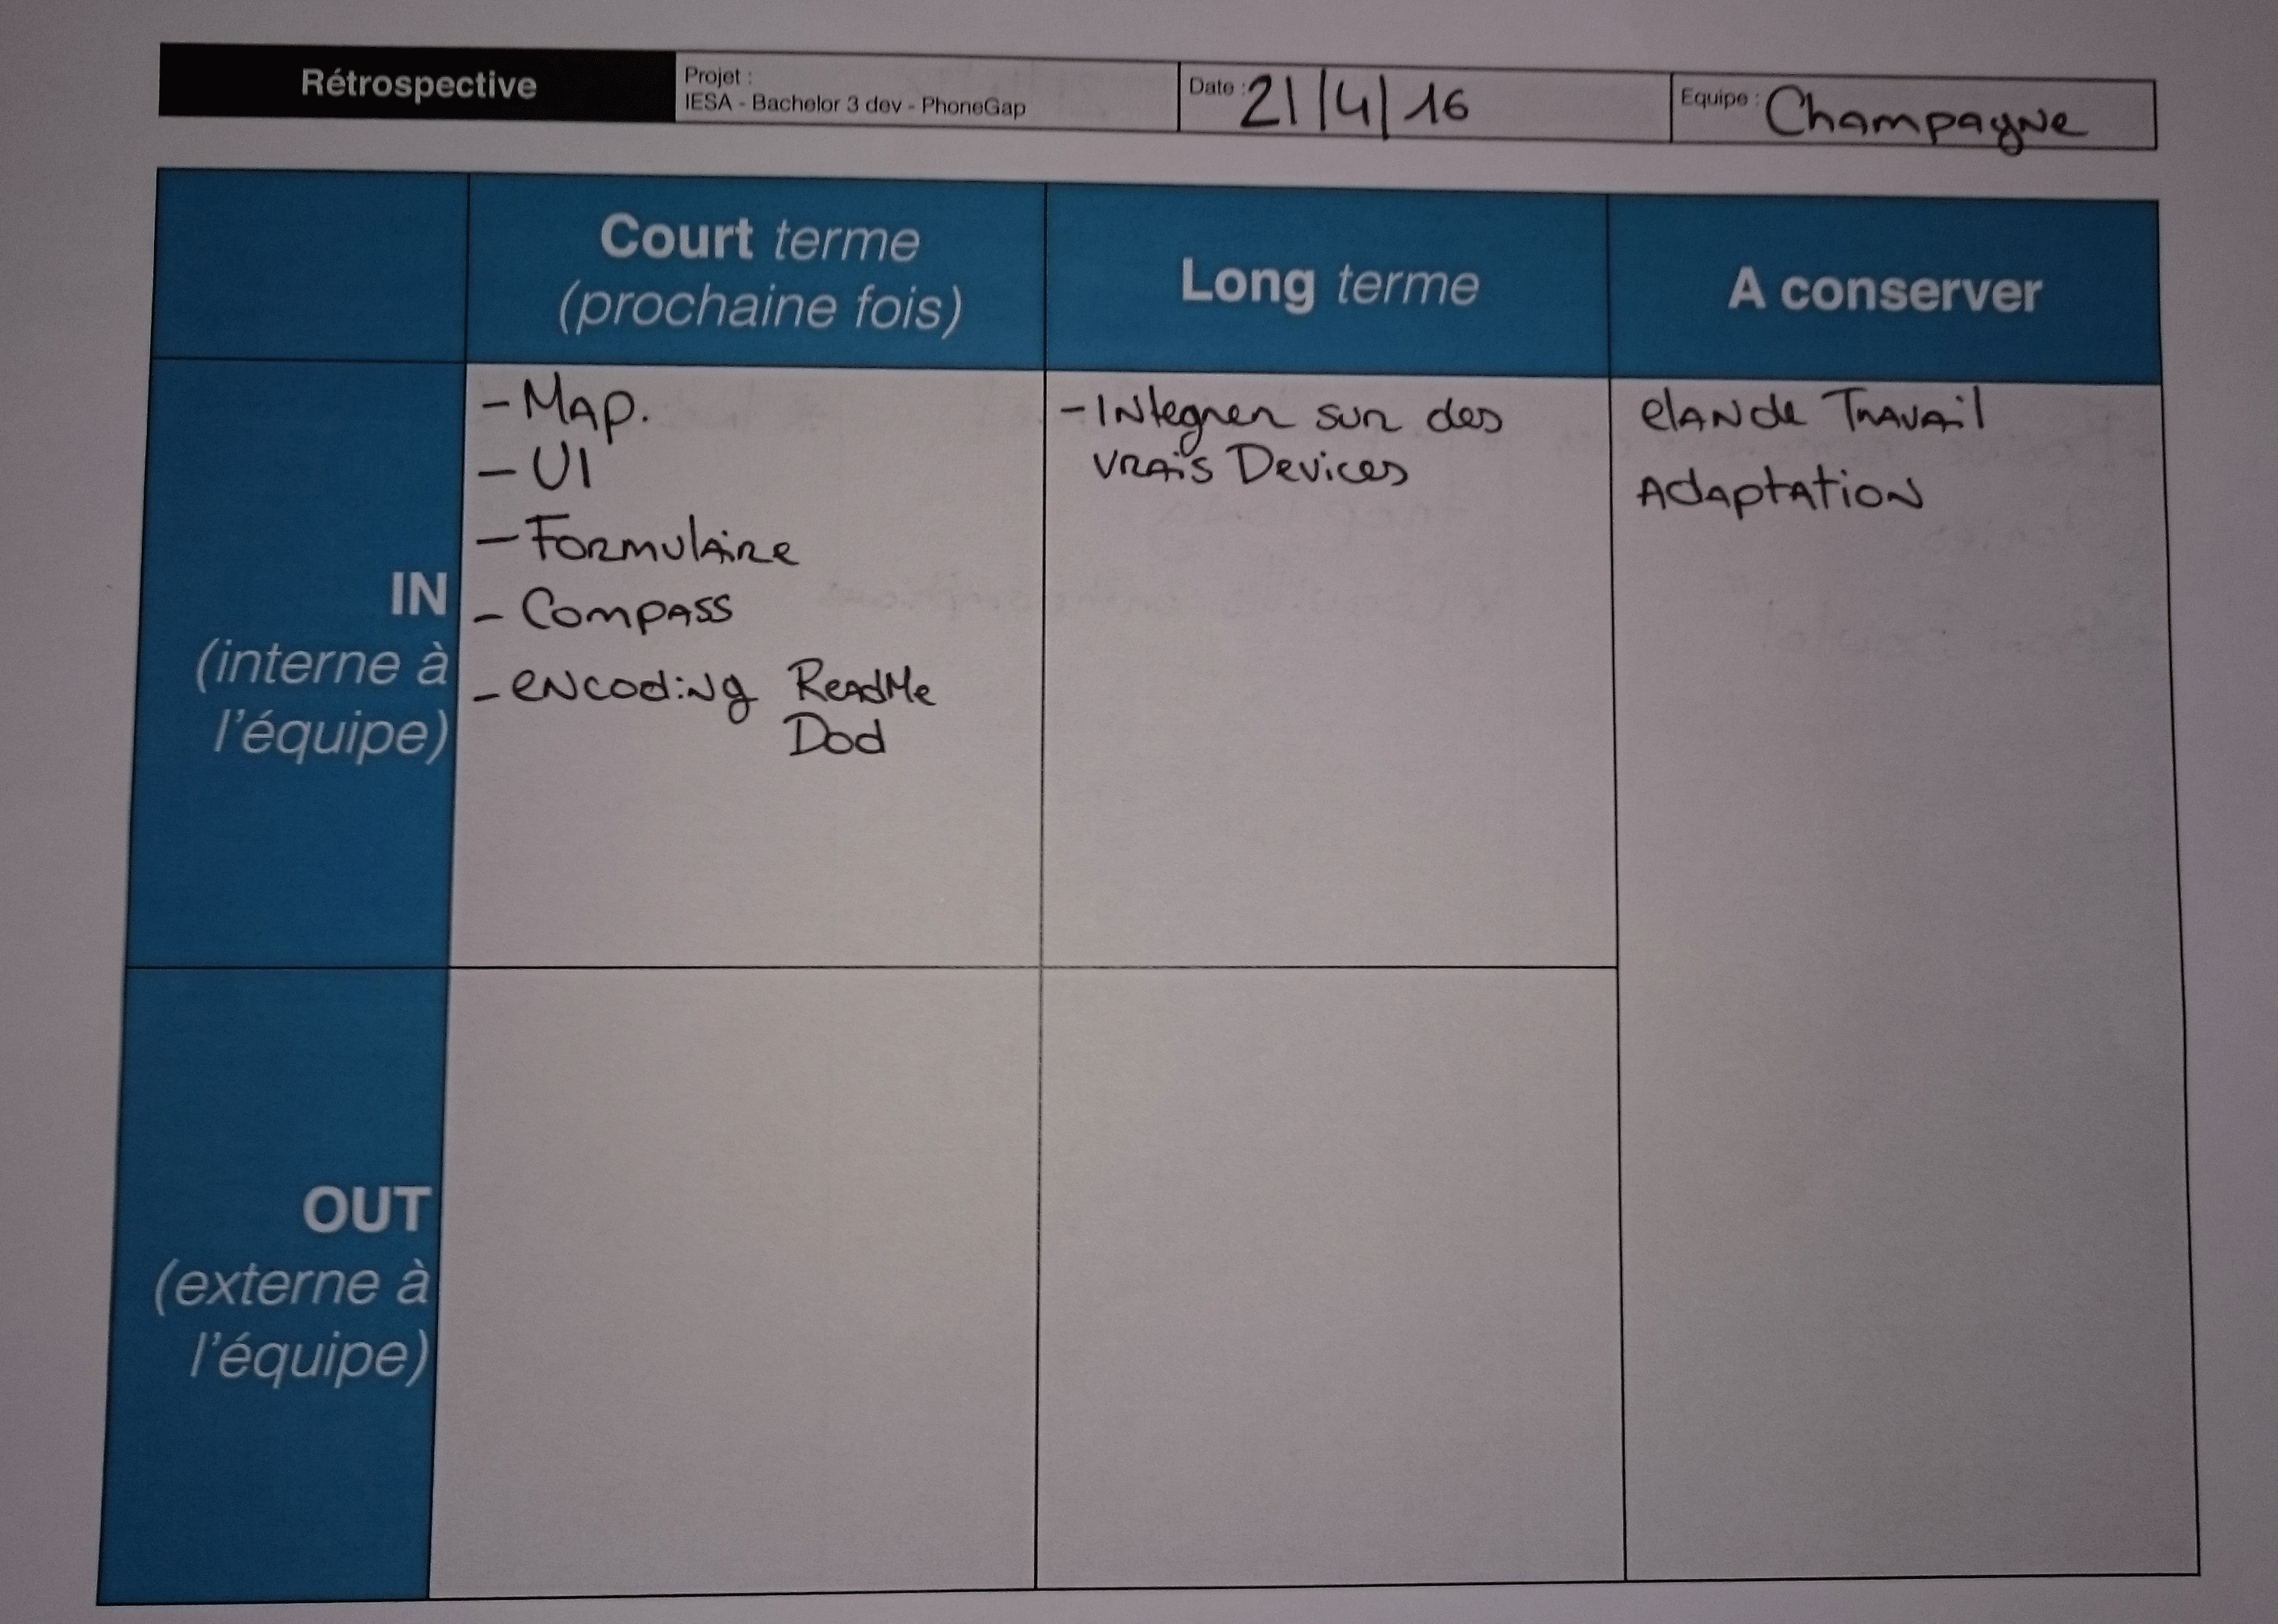 Rétrospective
Projet :
IESA - Bachelor 3 dev - PhoneGap
Date : 21/4/16
Equipe : Champagne
Court terme
(prochaine fois)
Long terme
A conserver
IN
(interne à
l'équipe)
- Map.
- UI
- Formulaire
- Compass
- encoding ReadMe
Dod
- Integrer sur des
vrais Devices
elan de Travail
Adaptation
OUT
(externe à
l'équipe)